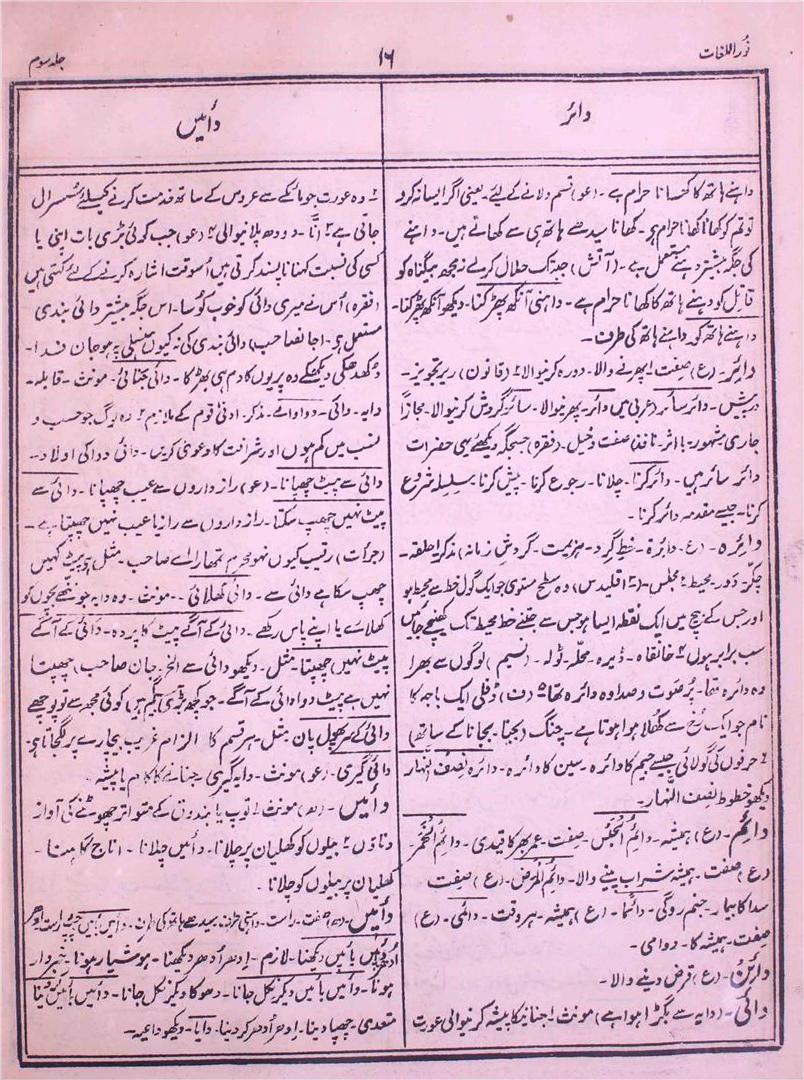 نُوراللغات
۱۶
جلد سوم
دائر
دائیں
داہنے ہاتھ کا کھانا حرام ہے۔ (عو) قسم دلانے کے لیئے۔ یعنی اگر ایسا نہ کرو
تو تم کو کھانا کھانا حرام ہو۔ کھانا سیدھے ہاتھ ہی سے کھاتے ہیں۔ داہنے
کی جگہ بیشتر دہنے مستعمل ہے۔ (آتش) جبتک حلال کرلے نہ مجھ بیگناہ کو
قاتل کو دہنے ہاتھ کا کھانا حرام ہے۔ داہنی آنکھ پھڑکنا۔ دیکھو آنکھ پھڑکنا۔
داہنے ہاتھ کو داہنے ہاتھ کی طرف۔
دائر۔ (ع) صفت ۱ پھرنے والا۔ دورہ کرنیوالا ۲ (قانون) زیر تجویز۔
درپیش۔ دائر سائر (عربی میں دائر۔ پھرنیوالا۔ سائر گردش کرنیوالا۔ مجازاً
جاری مشہور۔ با اثر نافذ) صفت دخیل۔ (فقرہ) جسجگہ دیکھئے یہی حضرات
دائر سائر ہیں۔ دائر کرنا۔ چلانا۔ رجوع کرنا۔ پیش کرنا۔ سلسلہ شروع
کرنا۔ جیسے مقدمہ دائر کرنا۔
دائرہ۔ (ع۔ دائرۃ۔ خط گرد۔ ہزیمت۔ گردش زمانہ) مذکر ۱ حلقہ۔
چکر۔ دَور۔ محیط ۲ مجلس۔ (۳ اقلیدس) وہ سطح مستوی جو ایک گول خط سے محیط ہو
اور جس کے بیچ میں ایک نقطہ ایسا ہو جس سے جتنے خط محیط تک کھینچے جائیں
سب برابر ہوں ۴ خانقاہ۔ ڈیرہ۔ محلہ۔ ٹولہ۔ (نسیم) لوگوں سے بھرا
وہ دائرہ تھا۔ پُرصَوت و صدا وہ دائرہ تھا ۵ (ف) ڈفلی ایک باجہ کا
نام جو ایک رُخ سے کھلا ہوا ہوتا ہے۔ چنگ (بجنا۔ بجانا کے ساتھ)
۶ حرفوں کی گولائی جیسے جیم کا دائرہ۔ سین کا دائرہ۔ دائرہ نصف النہار
دیکھو خطوط نصف النہار۔
دائم۔ (ع) ہمیشہ۔ دائم الحبس۔ صفت۔ عمر بھر کا قیدی۔ دائم الخمر۔
(ع) صفت۔ ہمیشہ شراب پینے والا۔ دائم المرض۔ (ع) صفت
سدا کا بیمار۔ جنم روگی۔ دائماً۔ (ع) ہمیشہ۔ ہر وقت۔ دائمی۔ (ع)
صفت۔ ہمیشہ کا۔ دوامی۔
دائن۔ (ع) قرض دینے والا۔
دائی۔ (دایہ سے بگڑا ہوا ہے) مونث ۱ جنانیکا پیشہ کرنیوالی عورت
۲ وہ عورت جو مائکے سے عروس کے ساتھ خدمت کرنے کیلئے سسرال
جاتی ہے ۳ اَنّا۔ دودھ پلانیوالی ۴ (عو) جب کوئی بڑی بات اپنی یا
کسی کی نسبت کہنا ناپسند کرتی ہیں اُسوقت اشارہ کرنے کے لئے کہتی ہیں
(فقرہ) اُس نے میری دائی کو خوب کوسا۔ اس جگہ بیشتر دائی بندی
مستعمل ہے۔ (جانصاحب) دائی بندی کی نہ کیوں ہنسلی پہ ہو جان فدا۔
دھکدھکی دیکھکے وہ پریوں کا دم ہی بھڑکا۔ دائی جنائی۔ مونث۔ قابلہ۔
دایہ۔ دائی۔ دودا والے۔ مذکر۔ ادنیٰ قوم کے ملازم ۲ وہ لوگ جو حسب و
نسب میں کم ہوں اور شرافت کا دعویٰ کریں۔ دائی ددا کی اولاد۔
دائی سے پیٹ چھپانا۔ (عو) رازداروں سے عیب چھپانا۔ دائی سے
پیٹ نہیں چھپ سکتا۔ رازداروں سے راز یا عیب نہیں چھپتا ہے۔
(جرأت) رقیب کیوں نہو محرم تمھارا اے صاحب۔ مثل ہے پیٹ کہیں
چھپ سکا ہے دائی سے۔ دائی کھلائی۔ مونث۔ وہ دایہ جو ننھے بچوں کو
کھلائے یا اپنے پاس رکھے۔ دائی کے آگے پیٹ کا پردہ۔ دائی کے آگے
پیٹ نہیں چھپتا مثل۔ دیکھو دائی سے الخ۔ (جان صاحب) چھپتا
نہیں ہے پیٹ ددا دائی کے آگے۔ جو کچھ بڑی بیگم ہیں کوئی مجھ سے تو پوچھے
دائی کے سر پھول پان مثل۔ ہر قسم کا الزام غریب بیچارے پر لگجاتا ہے۔
دائی گیری۔ (عو) مونث۔ دایہ گیری۔ جنانے کا کام یا پیشہ۔
دائیں۔ (ھ) مونث ۱ توپ یا بندوق کے متواتر چھوٹنے کی آواز
دنادن ۲ بیلوں کو کھلیان پر چلانا۔ دائیں چلانا۔ اناج گاہنا۔
کھلیان پر بیلوں کو چلانا۔
دائیں۔ (ھ) صفت۔ راست۔ داہنی طرف۔ سیدھے ہاتھ کی طرف۔ دائیں بائیں چپ راست ادھر ادھر
دائیں بائیں دیکھنا۔ لازم۔ اِدھر اُدھر دیکھنا۔ ہوشیار ہونا۔ خبردار
ہونا۔ دائیں بائیں دیکر نکل جانا۔ دھوکا دیکر نکل جانا۔ دائیں بائیں کردینا
متعدی۔ چھپا دینا۔ اِدھر اُدھر کردینا۔ دایا۔ دیکھو داعیہ۔